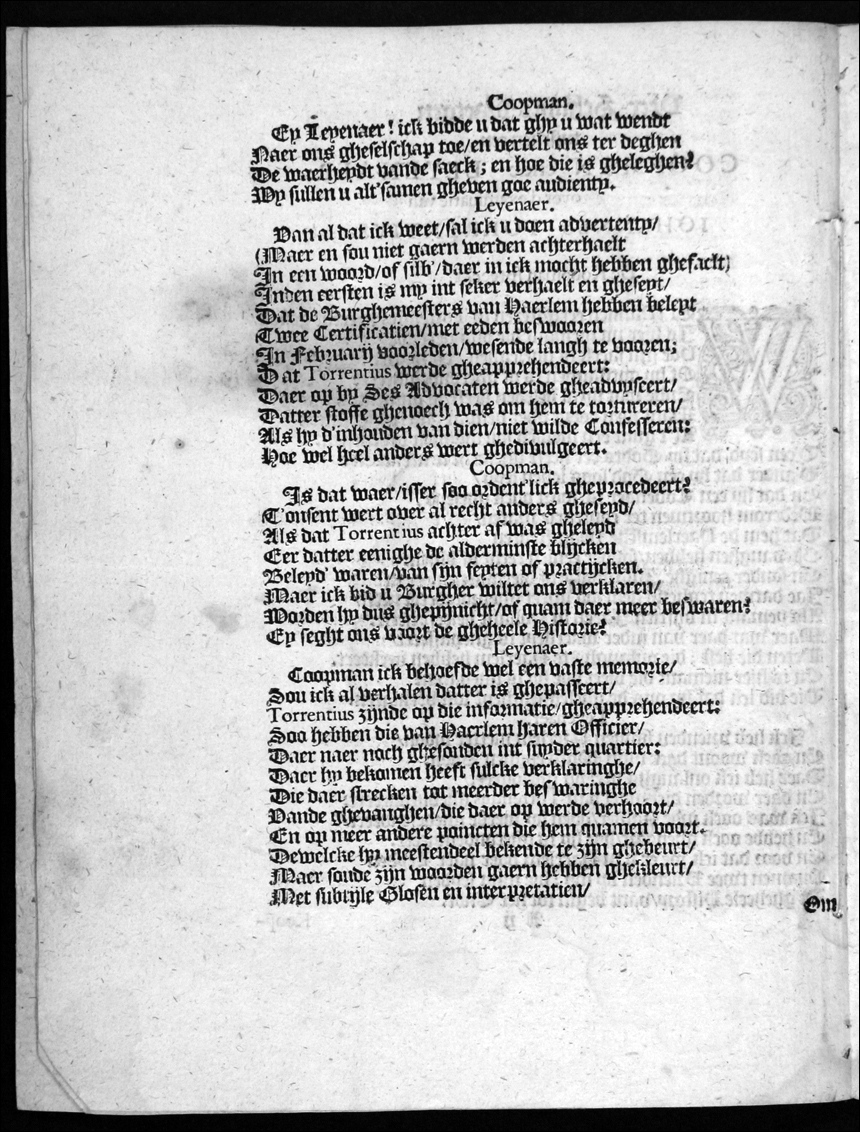 Coopman.
Ey Leyenaer! ick bidde u dat ghy u wat wendt
Naer ons gheselschap toe/en vertelt ons ter deghen
De waerheydt vande saeck; en hoe die is gheleghen?
Wy sullen u alt'samen gheven goe audienty.
Leyenaer.
Van al dat ick weet/sal ick u doen advertenty/
(Maer en sou niet gaern werden achterhaelt
In een woord/of silb'/daer in ick mocht hebben ghefaelt)
Inden eersten is my int seker verhaelt en gheseyt/
Dat de Burghemeesters van Haerlem hebben beleyt
Twee Certificatien/met eeden beswooren
In Februarij voorleden/wesende langh te vooren;
Dat Torrentius werde gheapprehendeert:
Daer op by Ses Advocaten werde gheadvyseert/
Datter stoffe ghenoech was om hem te tortureren/
Als hy d'inhouden van dien/niet wilde Confesseren:
Hoe wel heel anders wert ghedivulgeert.
Coopman.
Is dat waer/isser soo ordent'lick gheprocedeert?
T'onsent wert over al recht anders gheseyd/
Als dat Torrentius achter af was gheleyd
Eer datter eenighe de alderminste blijcken
Beleyd' waren/van sijn feyten of practijcken.
Maer ick bid u Burgher wiltet ons verklaren/
Worden hy dus ghepijnicht/of quam daer meer beswaren?
Ey seght ons voort de gheheele Historie?
Leyenaer.
Coopman ick behoefde wel een vaste memorie/
Sou ick al verhalen datter is ghepasseert/
Torrentius zijnde op die informatie/gheapprehendeert:
Soo hebben die van Haerlem haren Officier/
Daer naer noch ghesonden int suyder quartier:
Daer hy bekomen heeft sulcke verklaringhe/
Die daer strecken tot meerder beswaringhe
Vande ghevanghen/die daer op werde verhoort/
En op meer andere poincten die hem quamen voort.
Dewelcke hy meestendeel bekende te zijn ghebeurt/
Maer soude zijn woorden gaern hebben ghekleurt/
Met subtijle Glosen en interpretatien/
Om